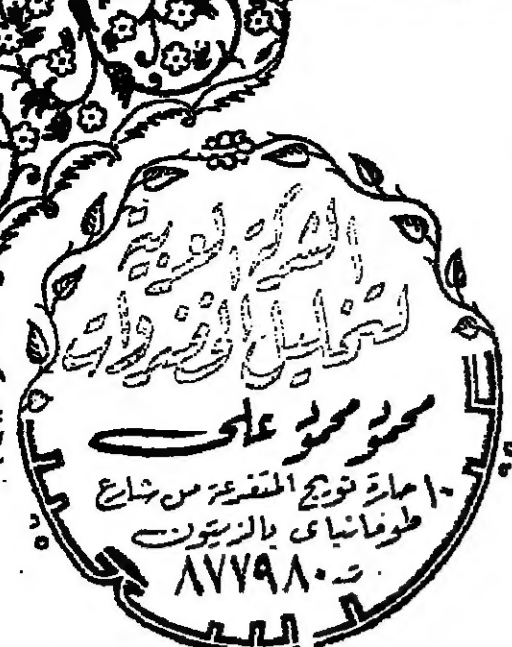 الشركة العربية
لتخليل الخضروات
محمود محمود على
١٠ حارة نويج المتفرعة من شارع
طومانباى بالزيتون
ت ٨٧٧٩٨٠